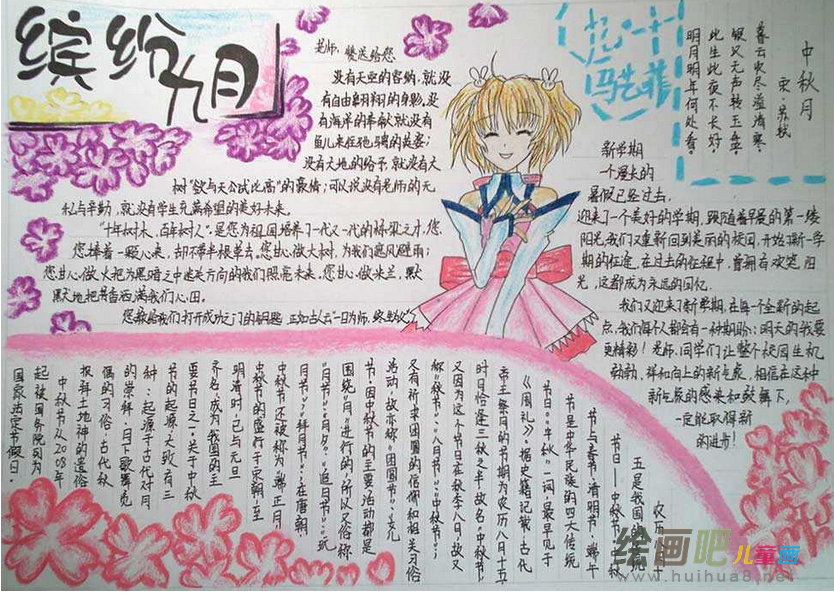 缤纷九月
老师,谨送给您
没有天空的容纳,就没
有自由翱翔的身影,没
有海洋的奉献就没有
鱼儿来往驰骋的英姿;
没有大地的给予,就没有大
树"欲与天公试比高"的豪情;可以说没有老师的无
私与辛勤,就没有学生充满希望的美好未来。
"十年树木,百年树人",是您为祖国培养了一代又一代的栋梁之才,您,
您捧着一颗心来,却不带半根草去,您甘心做大树,为我们避风避雨;
您甘心做火把为黑暗之中迷失方向的我们照亮未来,您甘心做米兰,默
默地把芳香洒满我们心田。
中秋月
宋·苏轼
暮云收尽溢清寒,
银汉无声转玉盘。
此生此夜不长好,
明月明年何处看。
新学期
一个漫长的
暑假已经过去,
迎来了一个美好的学期,跟随着早晨的第一缕
阳光,我们又重新回到美丽的校园,开始了新一学
期的征途,在过去的征程中,曾拥有欢笑,阳
光,这都成为永远的回忆。
我们又迎来了新学期,在每一个全新的起
点,我们每个人都会有一种期盼:明天的我要
更精彩!老师,同学们让整个校园生机
勃勃,祥和向上的新气象,相信在这种
新气象的感染和鼓舞下,
一定能取得新
的进步!
五是我国的
节日——中秋节,中秋
节与春节、清明节、端午
节是中华民族的四大传统
节日。"中秋"一词,最早见于
《周礼》。据史籍记载,古代
帝王祭月的节期为农历八月十五
时日恰逢三秋之半,故名"中秋节";
又因为这个节日在秋季八月,故又
称"秋节"、"八月节"、"中秋节";
又有祈求团圆的信仰和相关习俗
活动,故亦称"团圆节"、"女儿
节"。因中秋节的主要活动都是
围绕"月"进行的,所以又俗称
"月节"、"月夕"、"追月节"、"玩
月节"、"拜月节";在唐朝
中秋节还被称为"端正月"。
中秋节的盛行于宋朝,至
明清时,已与元旦
齐名,成为我国的主
要节日之一。关于中秋
节的起源,大致有三
种:起源于古代对月
的崇拜、月下歌舞觅
偶的习俗,古代秋
报拜土地神的遗俗。
中秋节从2008年
起被国务院列为
国家法定节假日。
绘画吧儿童画
www.huihua8.net